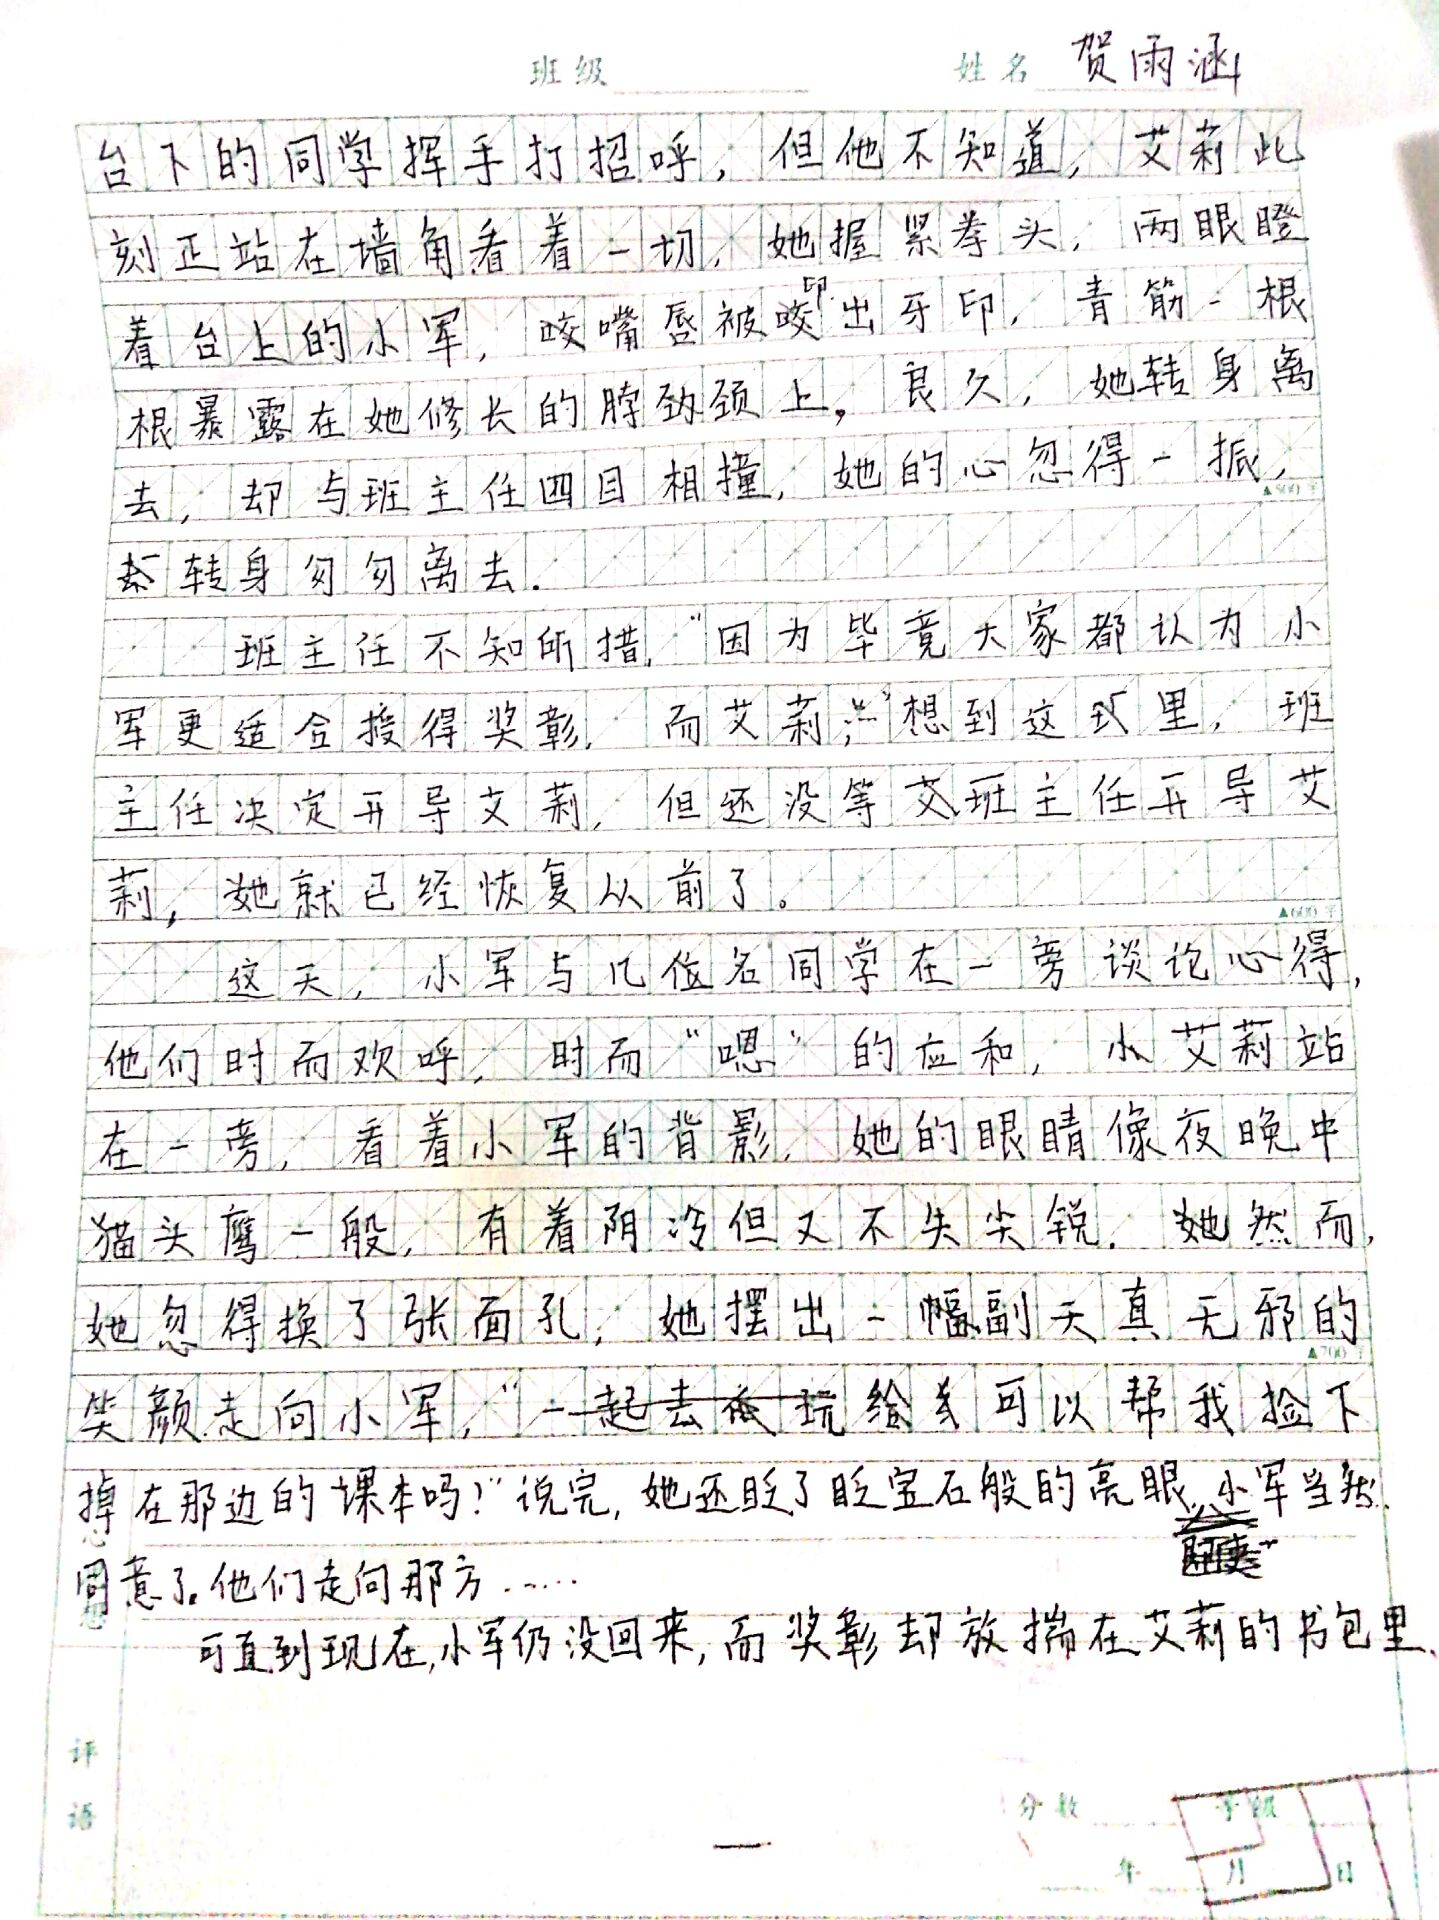 班级 姓名 贺雨涵
台下的同学挥手打招呼，但他不知道，艾莉此
刻正站在墙角看着一切，她握紧拳头，两眼瞪
着台上的小军，咬嘴唇被咬出牙印，青筋一根
根暴露在她修长的脖颈上，良久，她转身离
去，却与班主任四目相撞，她的心忽得一振，
▲500字
转身匆匆离去．
班主任不知所措，“因为毕竟大家都认为小
军更适合授得奖彰，而艾莉……”想到这里，班
主任决定开导艾莉，但还没等班主任开导艾
莉，她就已经恢复从前了。
▲600字
这天，小军与几位名同学在一旁谈论心得，
他们时而欢呼，时而“嗯”的应和，小艾莉站
在一旁，看着小军的背影，她的眼睛像夜晚中
猫头鹰一般，有着阴冷但又不失尖锐．她然而，
她忽得换了张面孔，她摆出一副天真无邪的
▲700字
笑颜走向小军，“可以帮我捡下
掉在那边的课本吗？”说完，她还眨了眨宝石般的亮眼，小军当然
同意了。他们走向那方……
可直到现在，小军仍没回来，而奖彰却放揣在艾莉的书包里．
评语
分数 等级
年 月 日